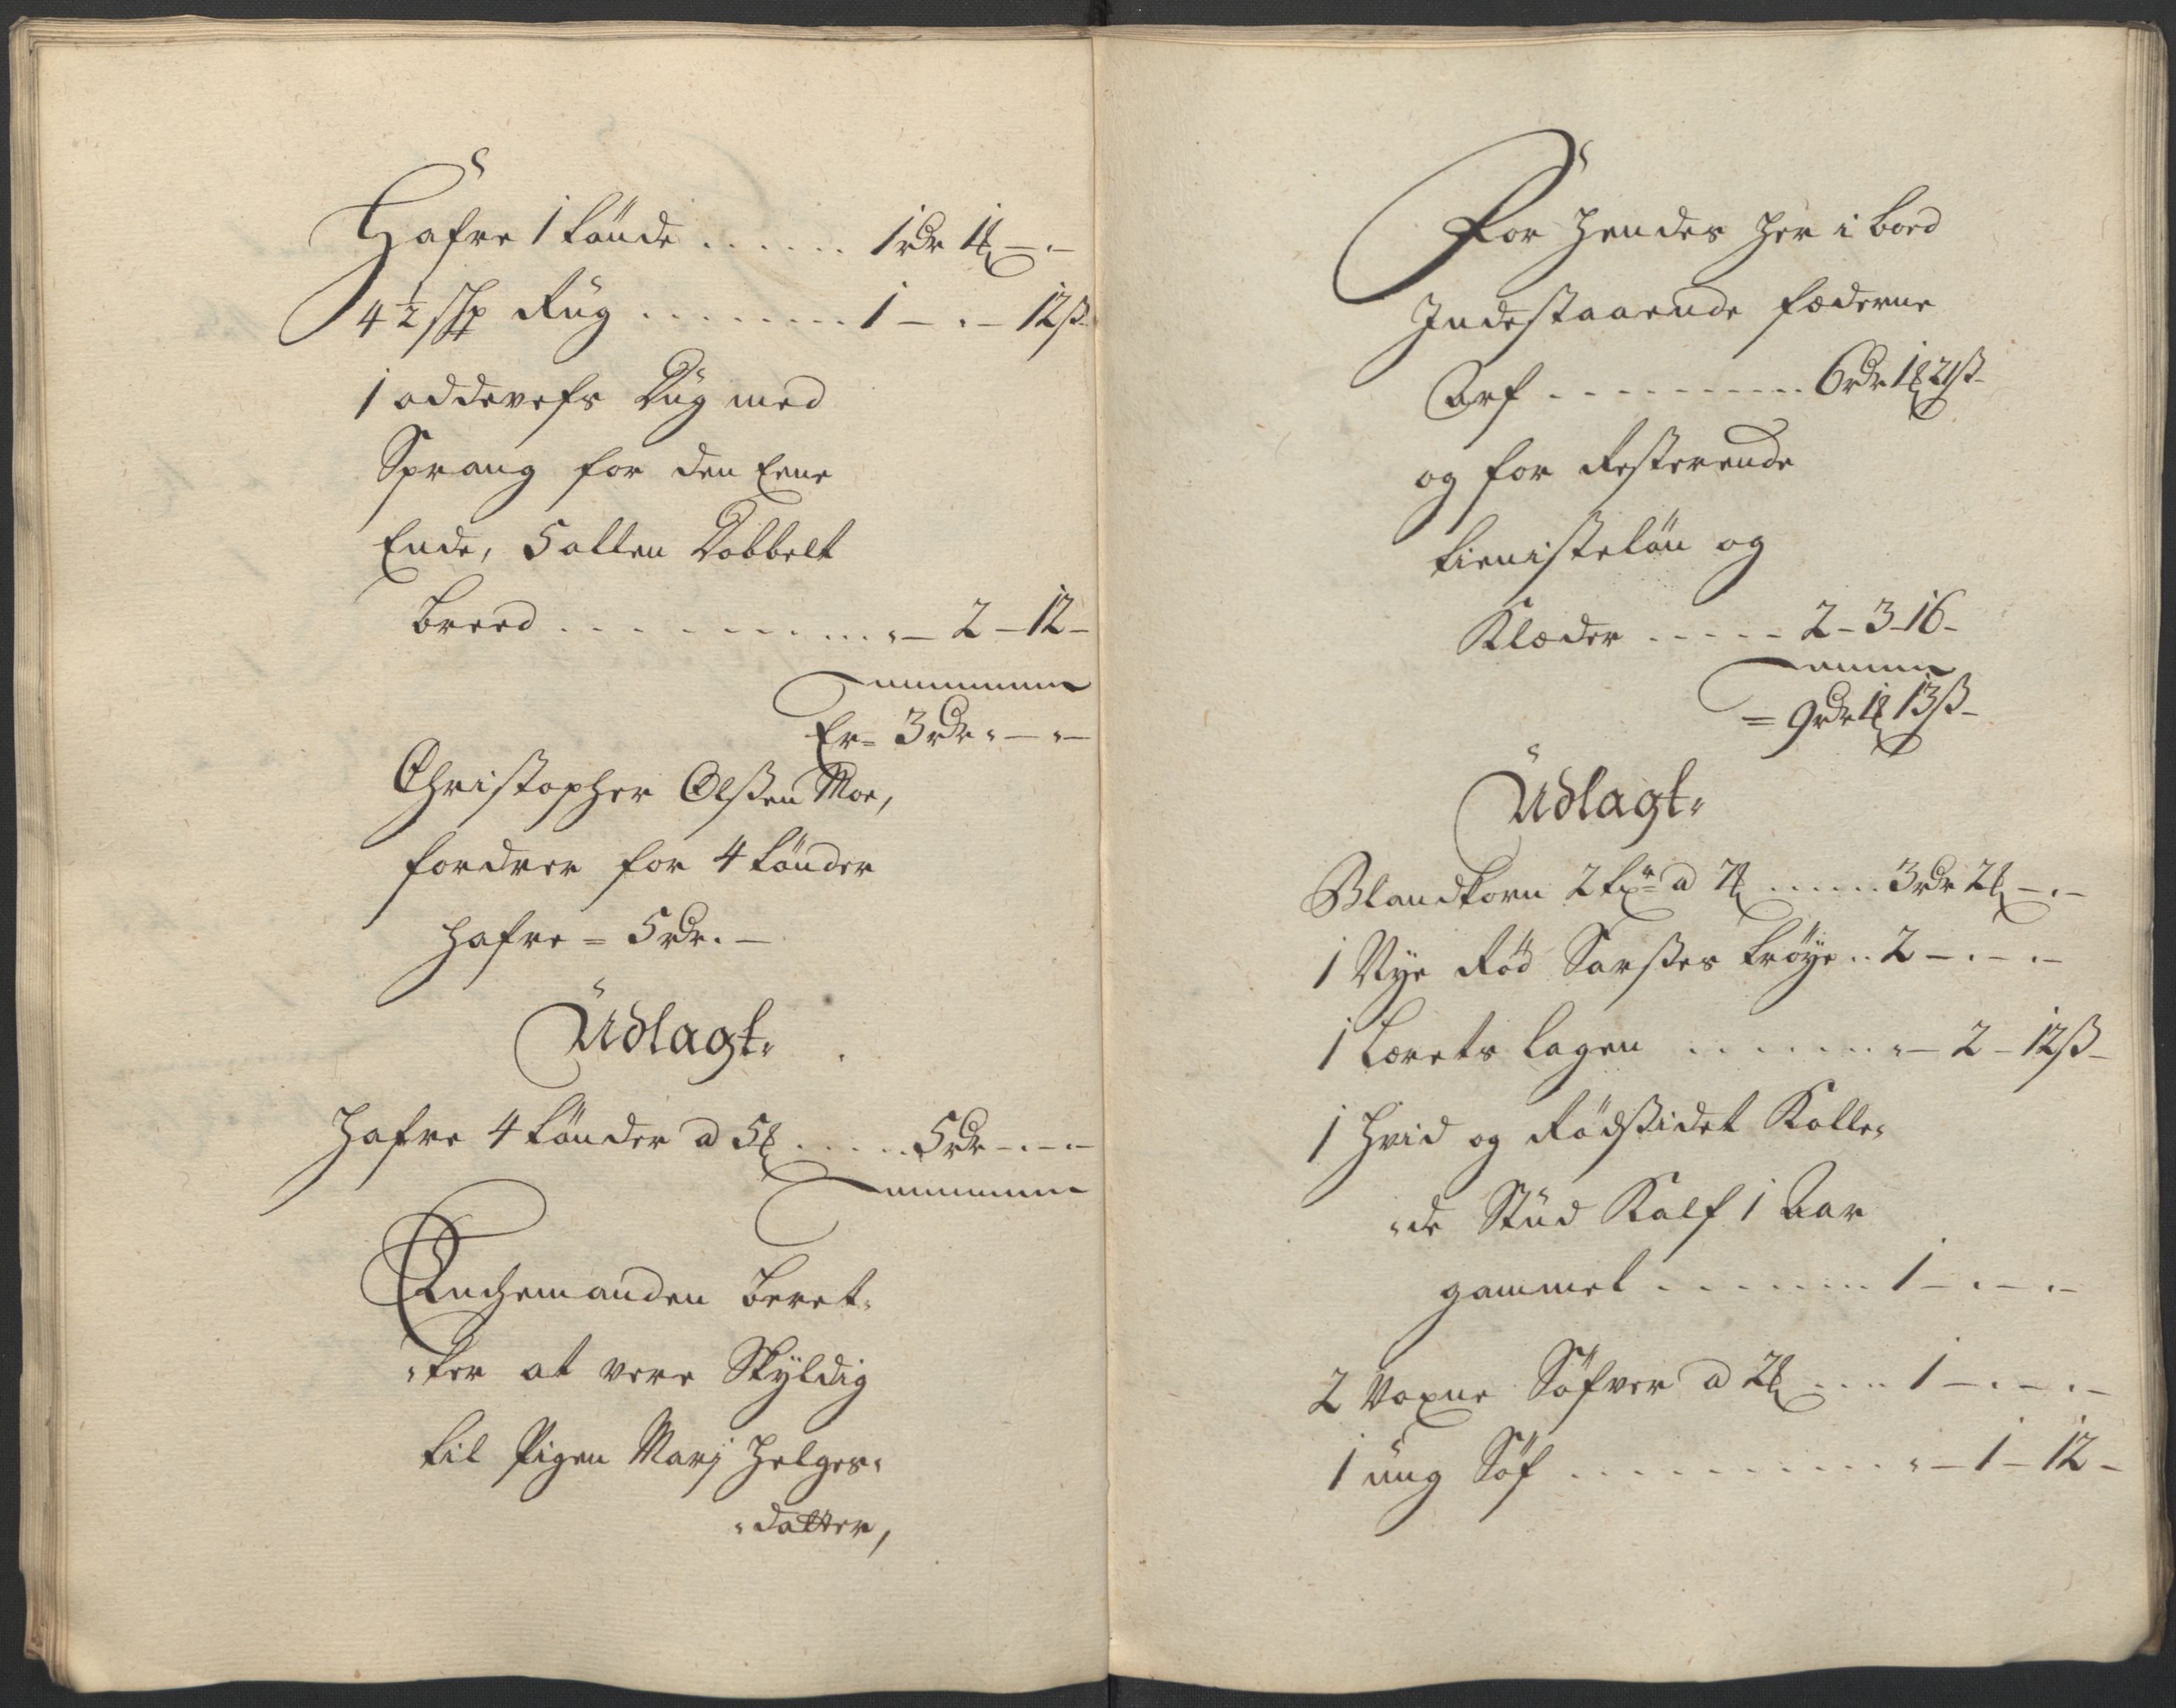 Hafre 1 tønde . . . . . . 1 rdr 1 ort - . -
4 1/2 skp Rüg . . . . . . . . 1 - . - 12 ß
1 oddevefs Düg med
Sprang for den Eene
Ende, 5 allen Dobbelt
breed . . . . . . . . . . . . - 2 - 12 -
Er = 3 rdr . - . -
Christopher Olßen Moe,
fordrer for 4 tønder
Hafre = 5 rdr . -
Üdlagt.
Hafre 4 tønder a 5 ort . . . . . 5 rdr - . - . -
Enchemanden beret-
-ter at vere Skÿldig
til Pigen Marj Helges-
-datter,
For Hendes her i boed
Indestaaende fæderne
Arf . . . . . . . . . . 6 rdr 1 ort 21 ß
og for Resterende
tieniste løn og
Klæder . . . . . 2 - 3 - 16 -
= 9 rdr 1 ort 13 ß
Üdlagt.
Blandkorn 2 tr a 7 ort . . . . . . 3 rdr 2 ort - . -
1 Nÿe Rød Sarßes trøÿe . . 2 - . - . -
1 Lærets lagen . . . . . . . . - 2 - 12 ß
1 Hvid og Rødßidet Kolle-
-de Stüd Kalf 1 Aar
gammel . . . . . . . 1 - . - . -
2 Voxne Søfver a 2 ort . . . . 1 - . - . -
1 üng Søf . . . . . . . . . . . - 1 - 12 -